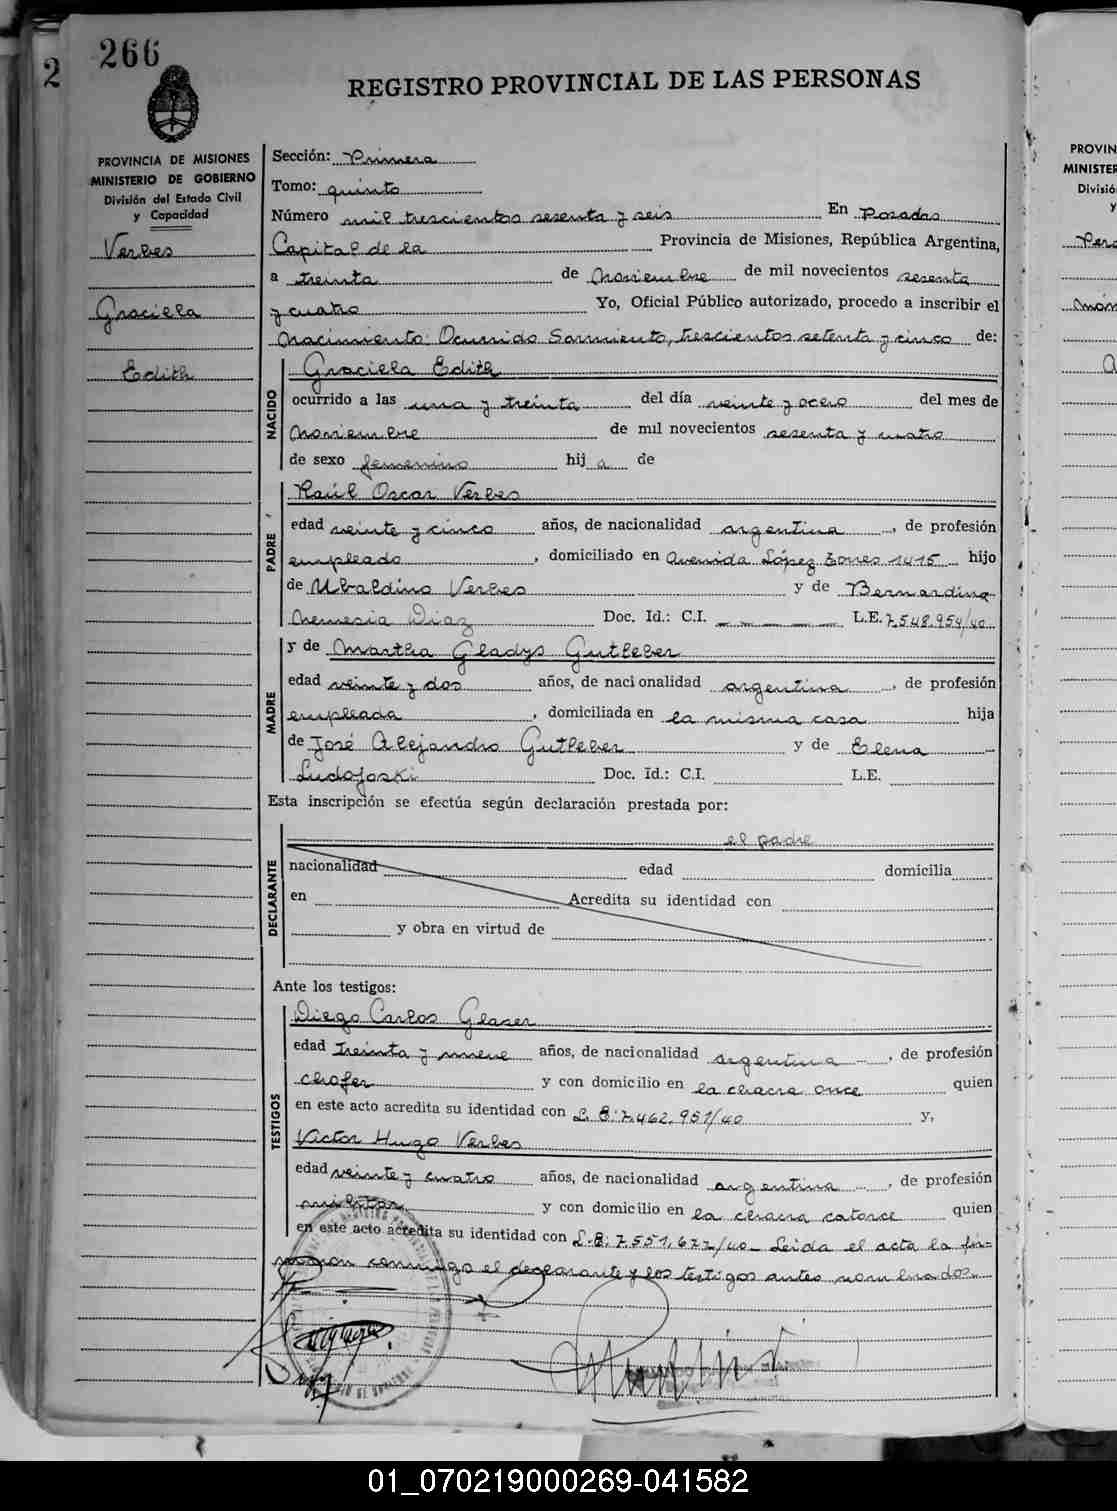 266
2
REGISTRO PROVINCIAL DE LAS PERSONAS
PROVINCIA DE MISIONES
MINISTERIO DE GOBIERNO
División del Estado Civil
y Capacidad
Verbes
Graciela
Edith
Sección: Primera
Tomo: quinto
Número mil trescientos sesenta y seis En Posadas
Capital de la Provincia de Misiones, República Argentina,
a treinta de Noviembre de mil novecientos sesenta
y cuatro Yo, Oficial Público autorizado, procedo a inscribir el
Nacimiento: Ocurrido Sarmiento, trescientos setenta y cinco de:
NACIDO
Graciela Edith
ocurrido a las una y treinta del día veinte y ocho del mes de
Noviembre de mil novecientos sesenta y cuatro
de sexo femenino hij a de
PADRE
Raúl Oscar Verbes
edad veinte y cinco años, de nacionalidad argentina, de profesión
empleado, domiciliado en Avenida López Torres 1415 hijo
de Ubaldino Verbes y de Bernardina
Nemesia Diaz Doc. Id.: C.I. — — — — — L.E. 7.548.954/40
MADRE
y de Martha Gladys Gutleber
edad veinte y dos años, de nacionalidad argentina, de profesión
empleada, domiciliada en la misma casa hija
de José Alejandro Gutleber y de Elena
Ludojoski Doc. Id.: C.I. L.E.
Esta inscripción se efectúa según declaración prestada por:
DECLARANTE
el padre
nacionalidad edad domicilia
en Acredita su identidad con
y obra en virtud de
Ante los testigos:
TESTIGOS
Diego Carlos Glaser
edad treinta y nueve años, de nacionalidad argentina, de profesión
chofer y con domicilio en la chacra once quien
en este acto acredita su identidad con L.E: 7.462.951/40 y,
Victor Hugo Verbes
edad veinte y cuatro años, de nacionalidad argentina, de profesión
militar y con domicilio en la chacra catorce quien
en este acto acredita su identidad con L.E: 7.551.677/40 - Leida el acta la fir-
maron conmigo el declarante y los testigos antes nombrados.
PROVIN
MINISTER
Divisió
y
01_070219000269-041582